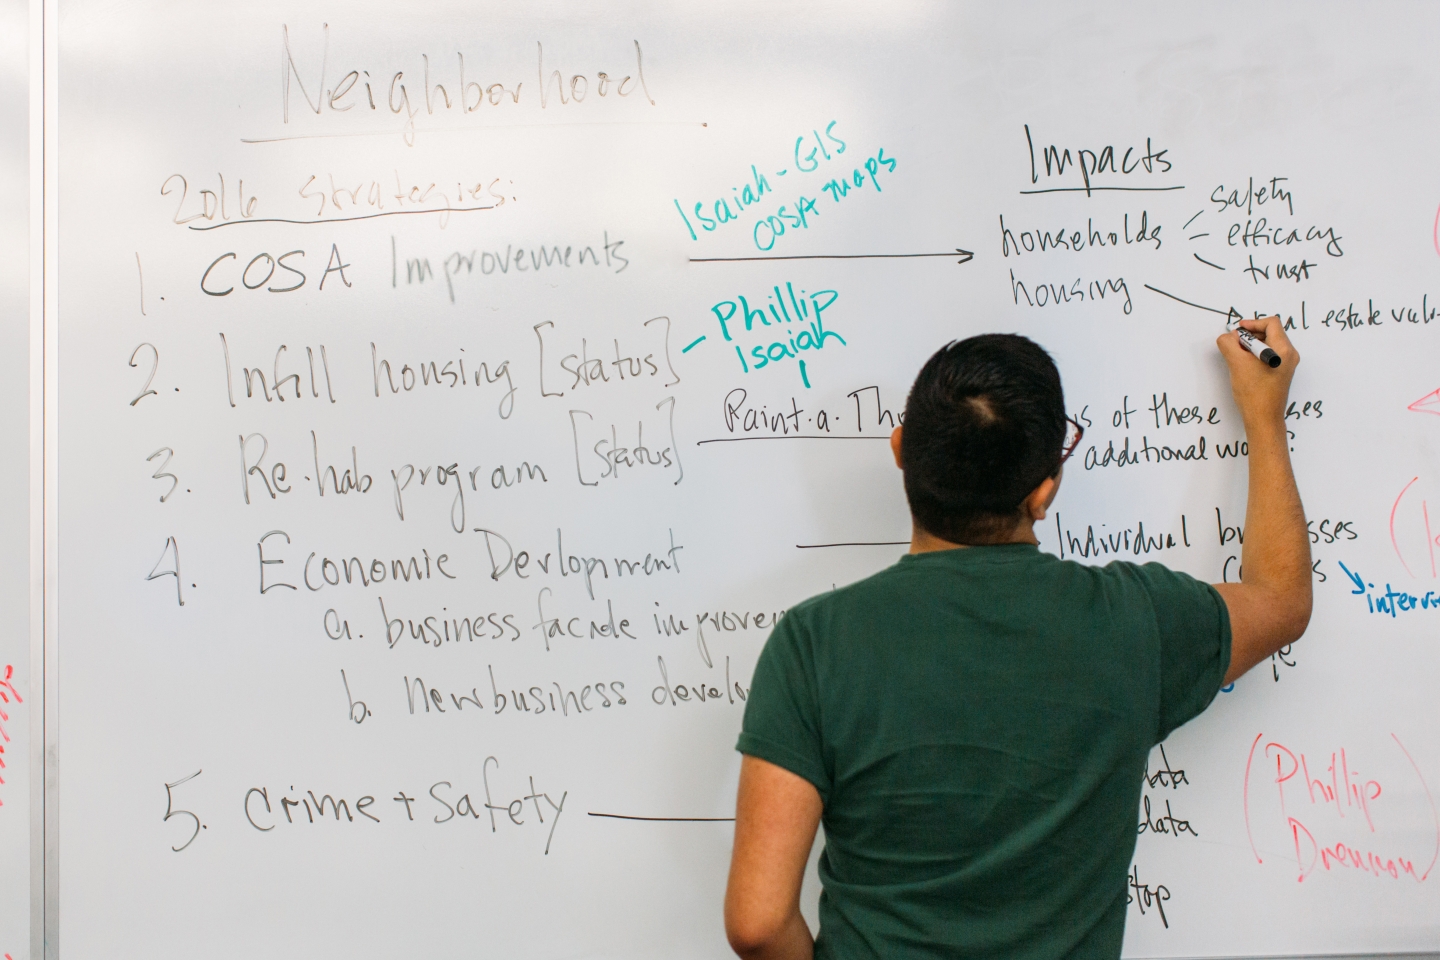 Neighborhood
2016 Strategies:
1. COSA Improvements
Isaiah - GIS
COSA maps
2. Infill housing [status]
- Phillip
Isaiah
3. Re-hab program [status]
Paint.a.
4. Economic Devlopment
a. business facade
b. new business
5. Crime + Safety
Impacts
households
- safety
- efficacy
- trust
housing
estate
of these
additional
Individual
data
data
stop
(Phillip
Drennon)